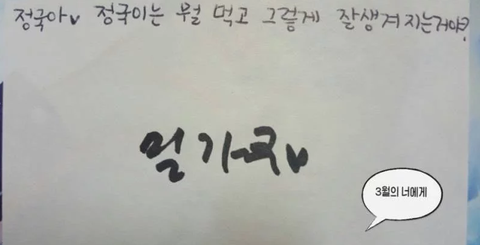 정국아♥ 정국이는 뭘 먹고 그렇게 잘생겨지는거야?
밀가루♥
3월의 너에게